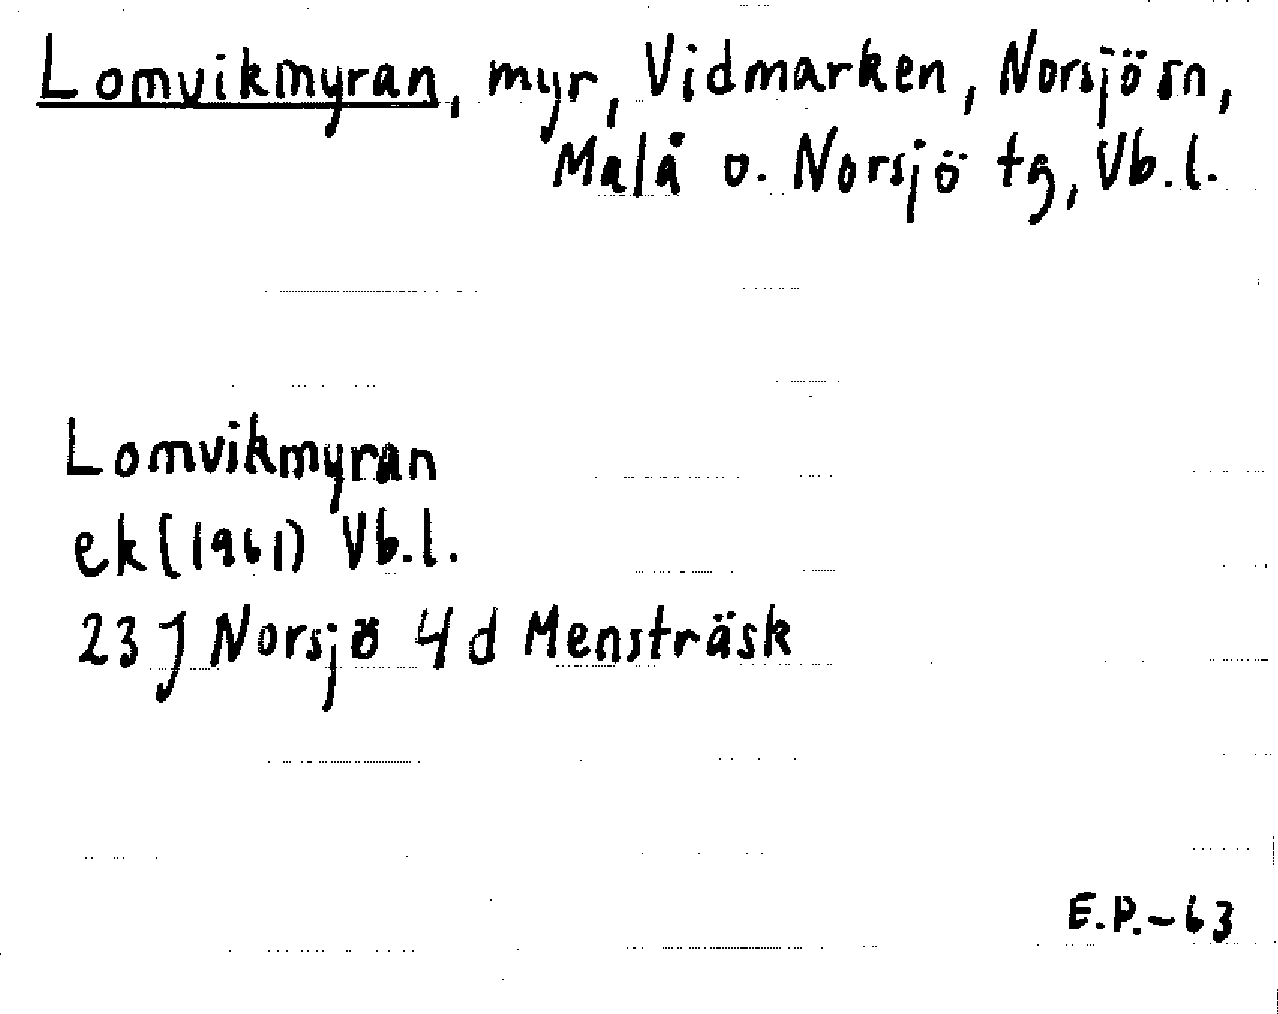 Lomvikmyran, myr, Vidmarken, Norsjö sn,
Malå o. Norsjö tg, Vb.l.
Lomvikmyran
ek (1961) Vb.l.
23 J Norsjö 4 d Mensträsk
E.P.-63